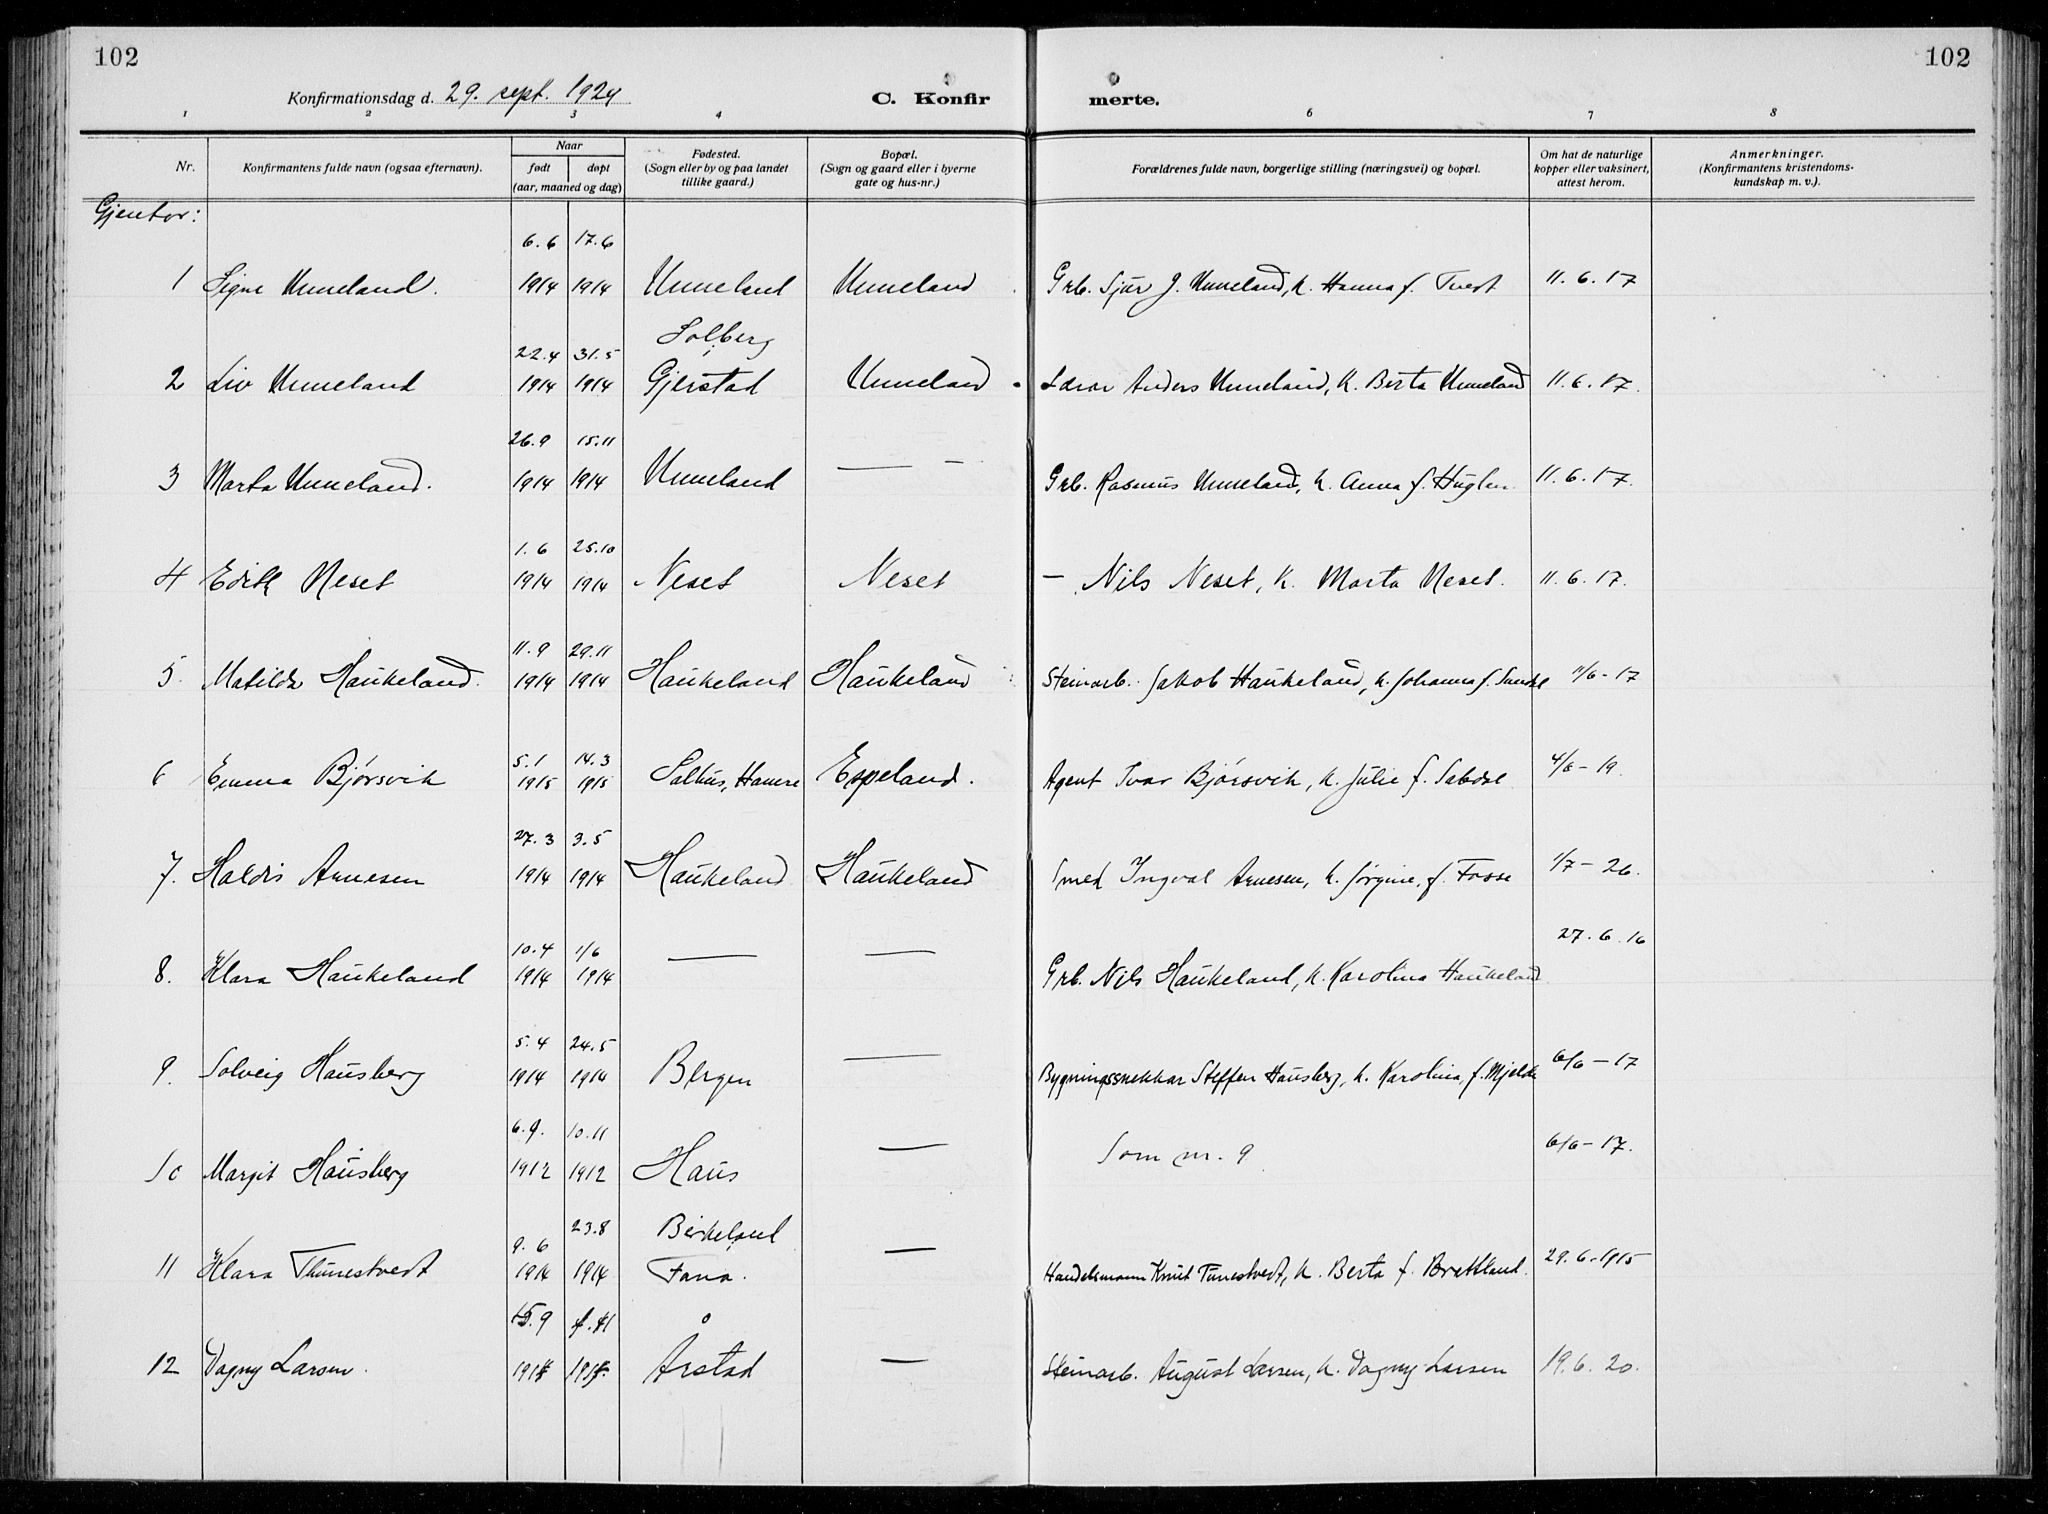 102
102
Konfirmationsdag d. 29. sept. 1929
C. Konfir merte.
1 2 3 4 5 6 7 8
Nr.
Konfirmantens fulde navn (ogsaa efternavn).
Naar
født døpt
(aar, maaned og dag)
Fødested.
(Sogn eller by og paa landet
tillike gaard.)
Bopæl.
(Sogn og gaard eller i byerne
gate og hus-nr.)
Forældrenes fulde navn, borgerlige stilling (næringsvei) og bopæl.
Om hat de naturlige
kopper eller vaksinert,
attest herom.
Anmerkninger.
(Konfirmantens kristendoms-
kundskap m. v.).
Gjentor:
6.6 17.6
1 Signe Unneland. 1914 1914 Unneland Unneland Grb. Sjur J. Unneland, k. Hanna f. Tvest 11.6.17
22.4 31.5 Solberg
2 Liv Unneland 1914 1914 Gjerstad Unneland Lærar Anders Unneland, k. Berta Unneland 11.6.17.
26.9 15.11
3 Marta Unneland. 1914 1914 Unneland — - Grb. Rasmus Unneland, k. Anna f. Huglen. 11.6.17.
1.6 25.10
4 Edith Neset 1914 1914 Neset Neset — Nils Neset, k. Marta Neset. 11.6.17.
11.9 29.11
5. Matilda Haukeland. 1914 1914 Haukeland Haukeland Steinarb. Jakob Haukeland, k. Johanna f. 11/6-17
5.1 14.3
6 Emma Bjørsvik 1915 1915 Salhus, Hamre Espeland. Agent Ivar Bjørsvik, k. Julie f. 4/6-19.
27.3 3.5
7. Haldis Arnesen 1914 1914 Haukeland Haukeland Smed Ingval Arnesen, k. Jørgine, f. Fosse 1/7-26.
10.4 1/6 — — 27.6.16
8. Klara Haukeland 1914 1914 Grb. Nils Haukeland, k. Karolina Haukeland
5.4 24.5
9. Solveig Hausberg 1914 1914 Bergen — Bygningssnekkar Steffen Hausberg, k. Karolina, f. Mjelde 6/6-17
6.9. 10.11
10 Margit Hausberg 1912 1912 Haus — Som nr. 9 6/6-17.
9.6 23.8 Birkeland
11 Klara Thunestvedt 1914 1914 Fana. — Handelsmann Knut Tunestvedt, k. Berta f. Brekkland. 29.6.1915
15.9
12 Dagny Larsen. Årstad — Steinarb. August Larsen, k. Dagny Larsen 19.6.20.